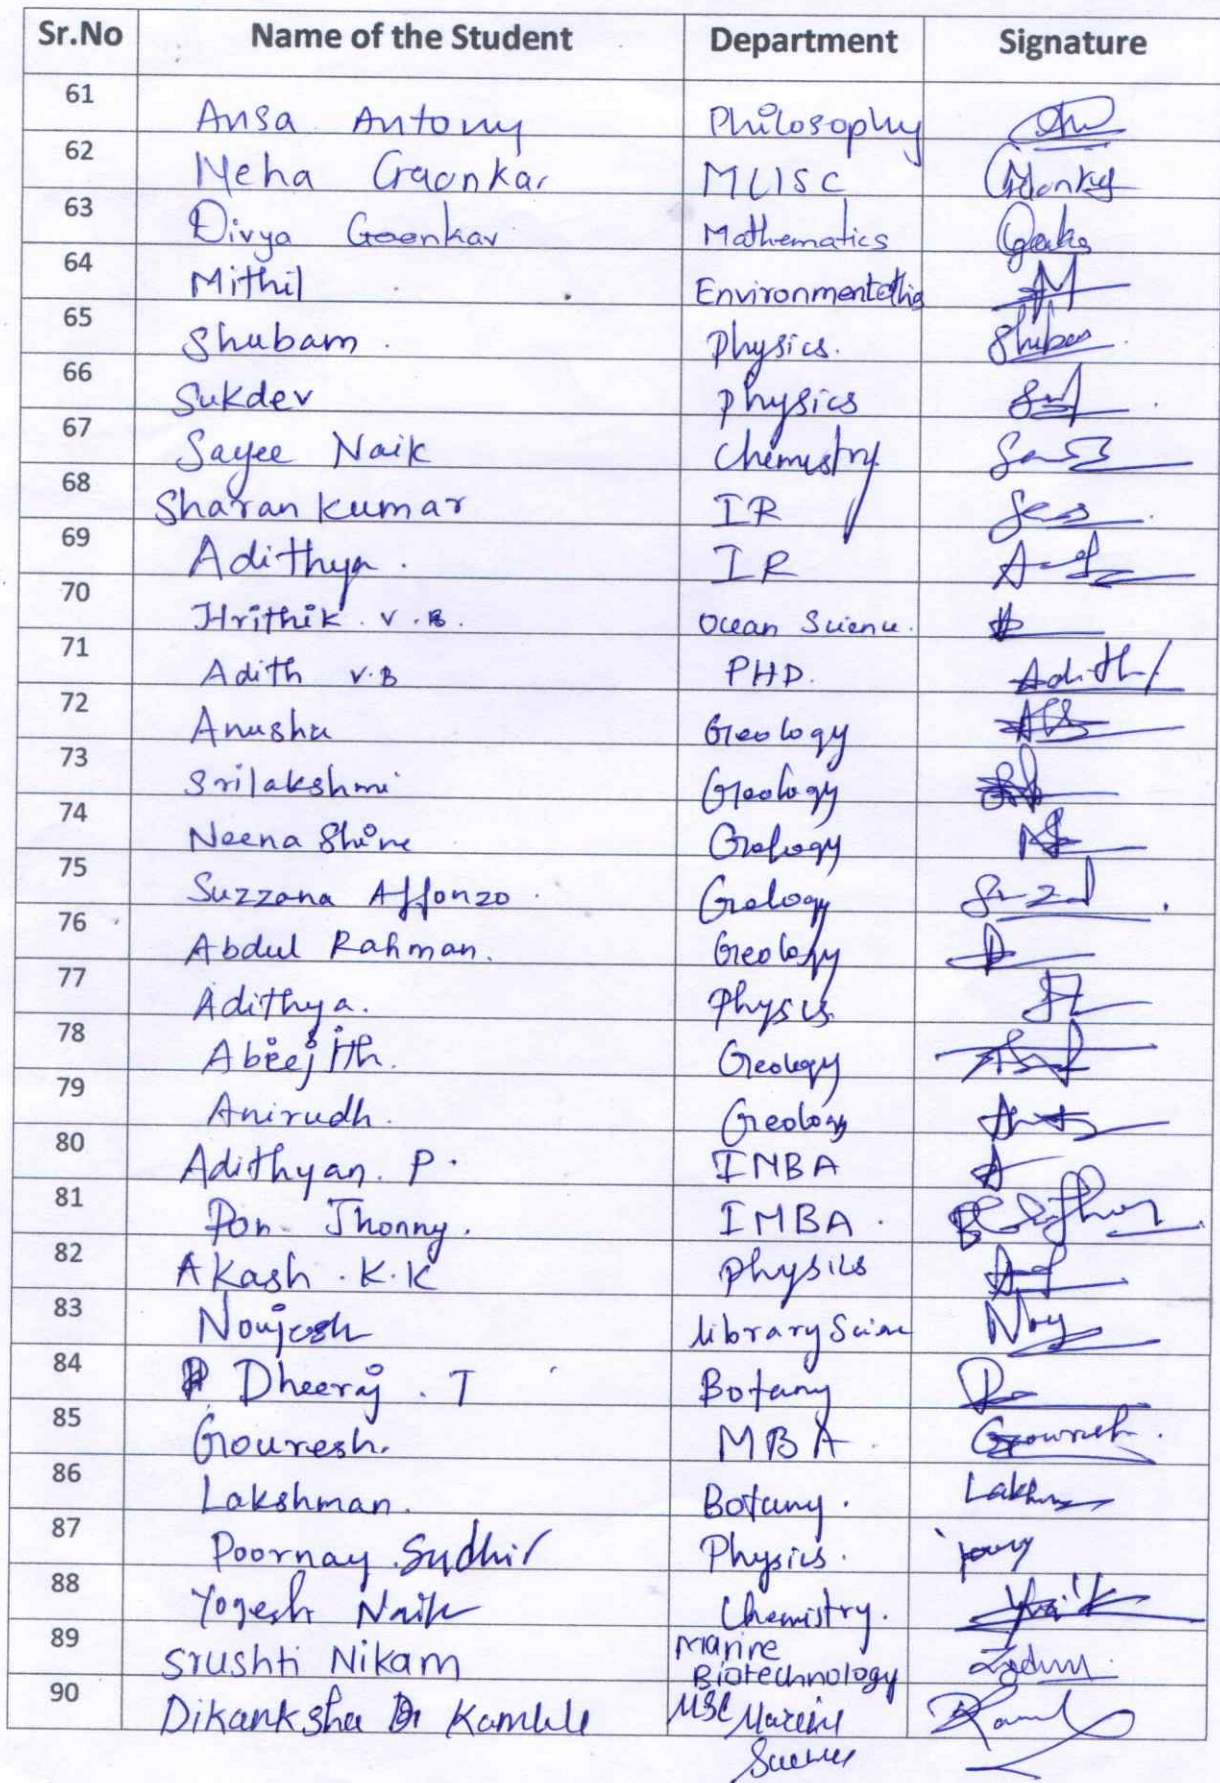 Sr.No Name of the Student Department Signature
61 Ansa Antony Philosophy
62 Neha Gaonkar MLISC
63 Divya Gaonkar Mathematics
64 Mithil
65 Shubam. Physics. Shubam
66 Sukdev Physics
67 Sayee Naik Chemistry
68 Sharan kumar IR
69 Adithya. IR
70 Hrithik. V.B. Ocean Science.
71 Adith V.B PHD. Adith
72 Anusha Geology
73 Srilakshmi Geology
74 Neena Shine Geology
75 Suzzana Affonzo. Geology
76 Abdul Rahman. Geology
77 Adithya. Physics
78 Abeejith. Geology
79 Anirudh. Geology
80 Adithyan. P. IMBA
81 Pon Jhonny. IMBA.
82 Akash. K.K Physics
83 Noujesh library Science
84 Dheeraj. T Botany
85 Gouresh. MBA. Gouresh.
86 Lakshman. Botany.
87 Poornay Sudhir Physics.
88 Yogesh Naik Chemistry.
89 Srushti Nikam Marine
Biotechnology
90 Dikanksha Kamble MSC Marine
Science